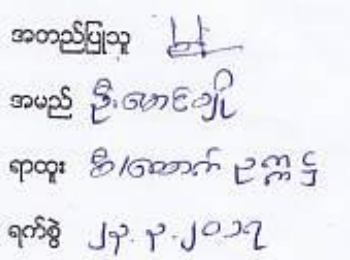 အတည်ပြုသူ
အမည် ဦးမောင်ချို
ရာထူး ဒီ/ထောက် ဥက္ကဋ္ဌ
ရက်စွဲ ၂၃.၃.၂၀၁၇